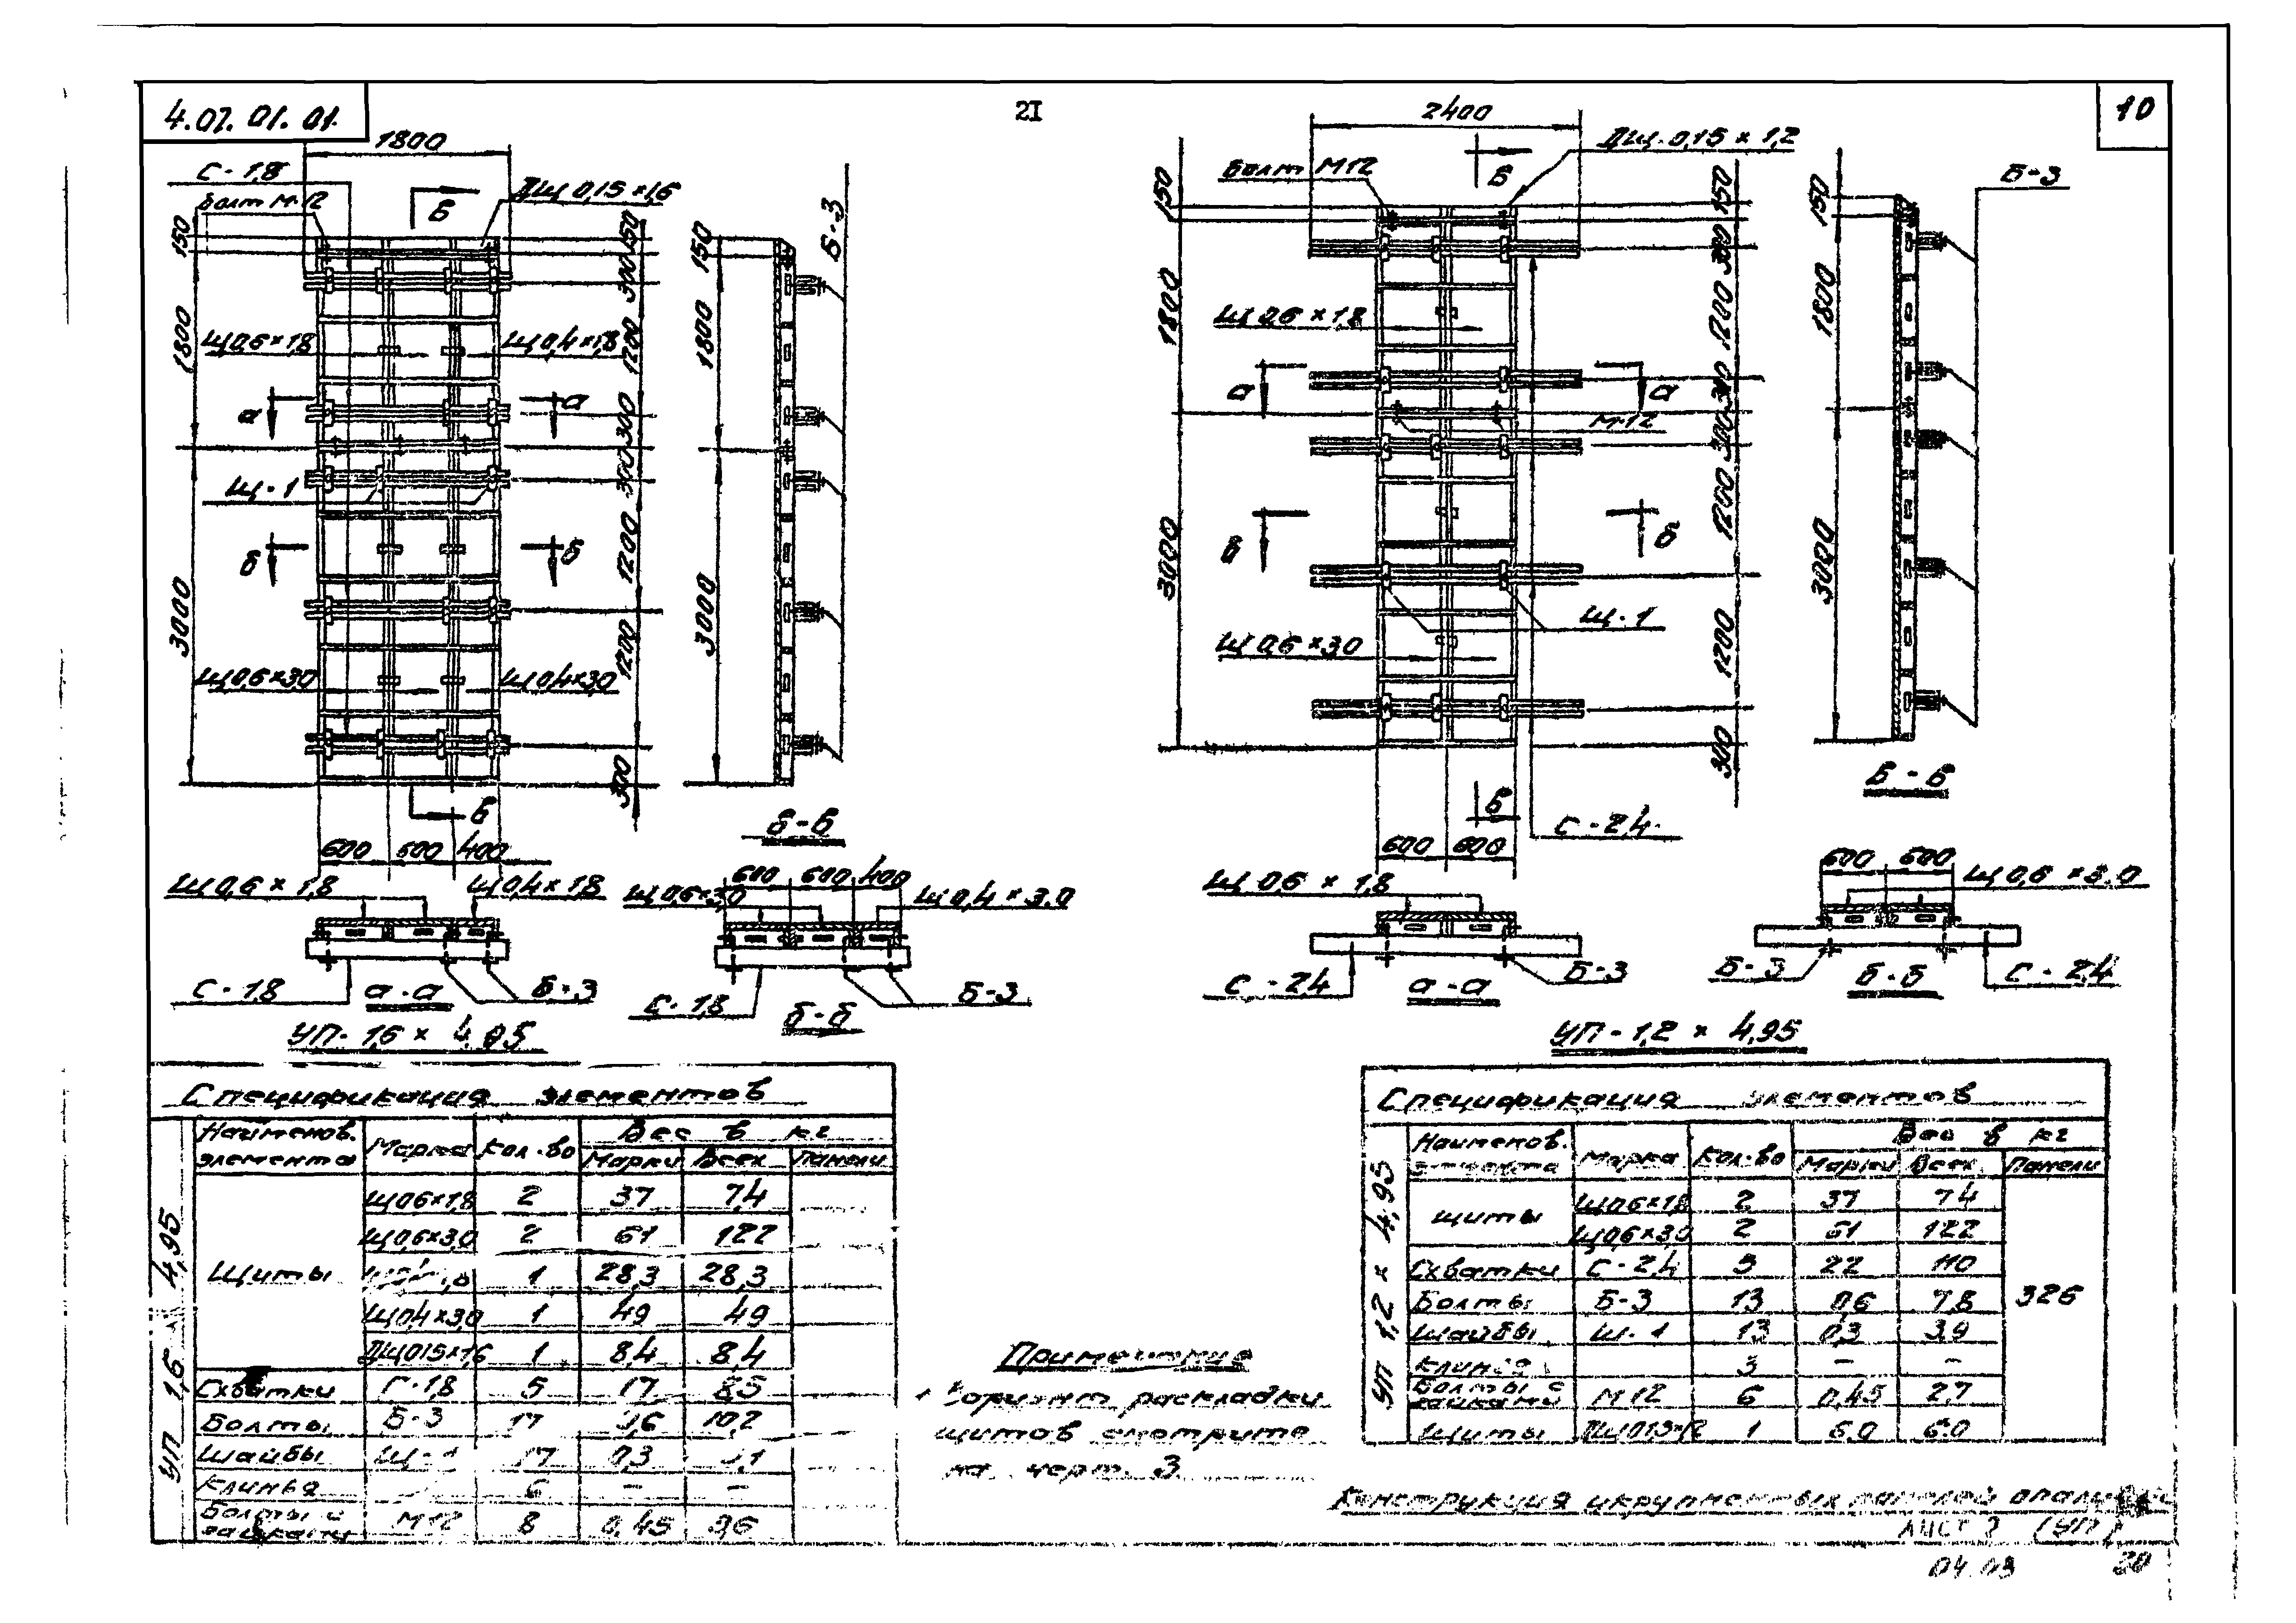 4.07.01.01.
21
10
1800
С-1,8
Болт М-12
ДЩ 0,15×1,6
Б
150
1800
3000
Щ0,6×1,8
Щ0,4×1,8
а
а
Щ-1
б
б
Щ0,6×3,0
Щ0,4×3,0
Б
150
300
1200
300
300
1200
1200
300
600 600 400
150
1800
3000
Б-3
Б-Б
Щ0,6×1,8
Щ0,4×1,8
С-1,8
а-а
Б-3
600 600 400
Щ0,6×3,0
Щ0,4×3,0
С-1,8
б-б
Б-3
УП-1,6×4,95
2400
Болт М12
Б
ДЩ-0,15×1,2
150
1800
3000
Щ0,6×1,8
а
а
М-12
б
б
Щ-1
Щ0,6×3,0
Б
С-2,4
150
300
1200
300
300
1200
1200
300
600 600
150
1800
3000
Б-3
Б-Б
Щ0,6×1,8
С-2,4
а-а
Б-3
600 600
Щ0,6×3,0
Б-3
б-б
С-2,4
УП-1,2×4,95
Спецификация элементов
УП 1,6 × 4,95
Наименов. элемента Марка Кол-во Вес в кг
Марки Всех Панели
Щиты
Щ0,6×1,8 2 37 74
Щ0,6×3,0 2 61 122
1 28,3 28,3
Щ0,4×3,0 1 49 49
ДЩ0,15×1,6 1 8,4 8,4
Схватки С-1,8 5 17 85
Болты Б-3 17 0,6 10,2
Шайбы 17 0,3
Клинья 6 – –
Болты с гайками М12 8 0,45 3,6
Спецификация элементов
УП 1,2 × 4,95
Наименов. элемента Марка Кол-во Вес в кг
Марки Всех Панели
Щиты Щ0,6×1,8 2 37 74
Щ0,6×3,0 2 61 122
Схватки С-2,4 5 22 110
Болты Б-3 13 0,6 7,8
326
Шайбы Ш-1 13 0,3 3,9
Клинья 3 – –
Болты с гайками М12 6 0,45 2,7
Щиты 1 6.0 6.0
Примечание
Вариант раскладки
щитов смотрите
на черт. 3
Конструкция укрупненных панелей опалубки
лист 2 (УП)
04.03
20